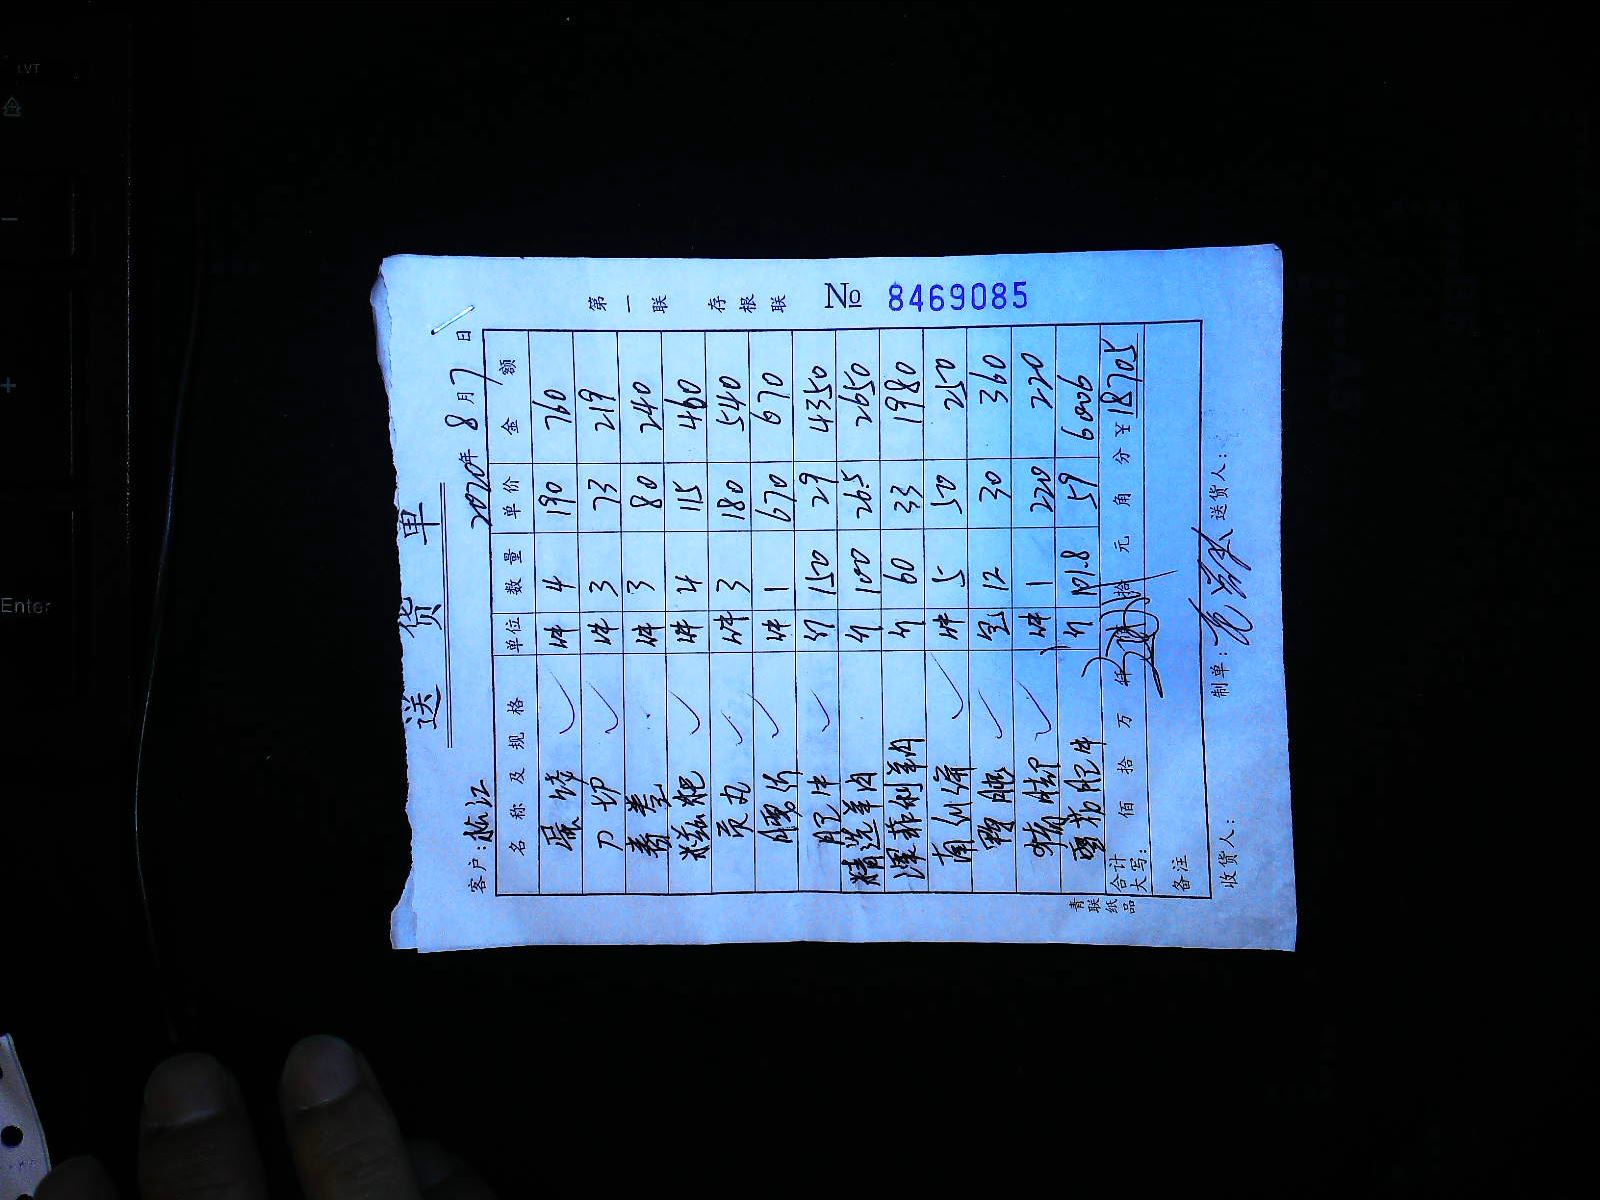 送货单
客户: 松江 2020年8月7日
第一联 存根联 № 8469085
名称及规格 单位 数量 单价 金额
件 4 190 760
刀切 件 3 73 219
香卷 件 3 80 240
糍粑 件 4 115 460
贡丸 件 3 180 540
件 1 670 670
肥牛 斤 150 29 4350
精选羊肉 斤 100 26.5 2650
澳菲利羊肉 斤 60 33 1980
南瓜饼 件 5 50 250
鸭肠 包 12 30 360
件 1 220 220
雪花肥牛 斤 101.8 59 6006
合计大写: 佰 拾 万 仟 拾 元 角 分 ¥18705
备注
收货人: 制单: 送货人:
青联纸品
Enter